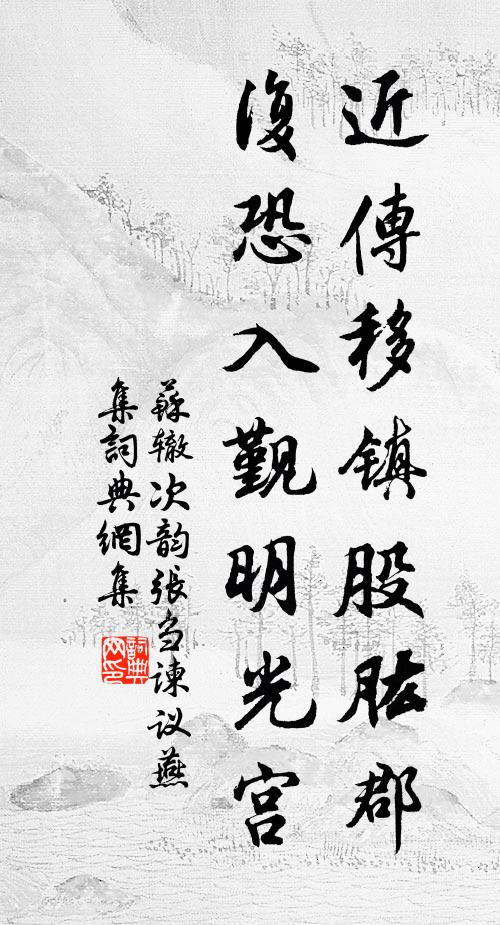 近傳移镇股肱郡
復恐入觐明光宫
蘇辙次韵張刍諫议燕
集詞典網集
詞典網印